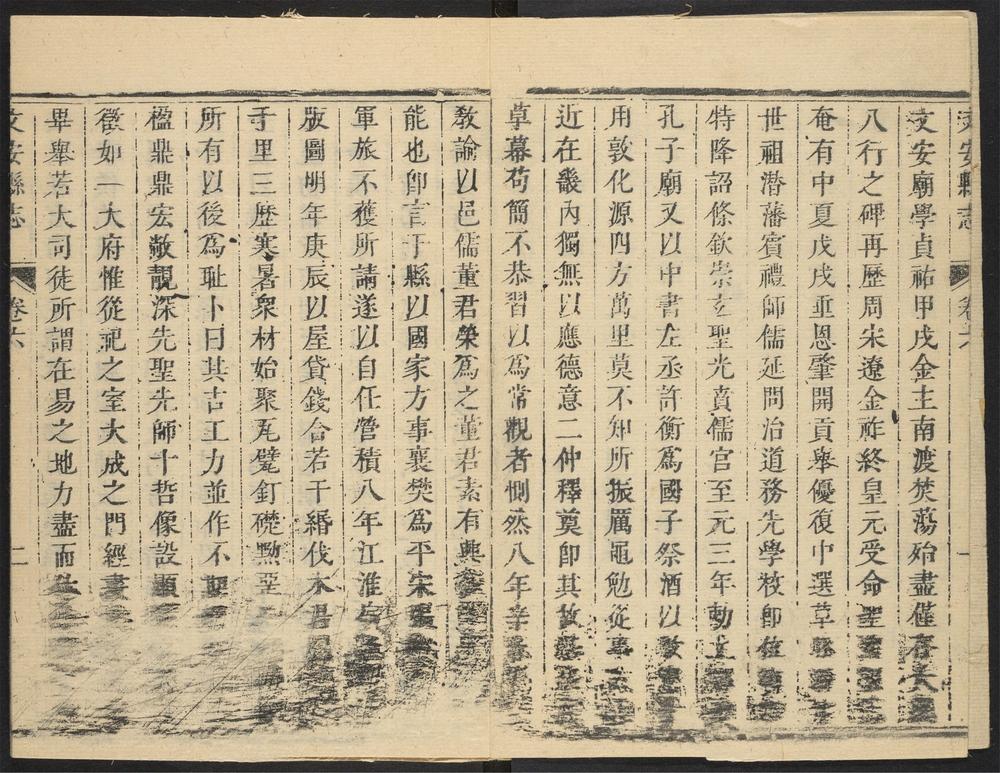 文安縣志
卷六
一
文安廟學貞祐甲戌金主南渡焚蕩殆盡僅存大
八行之碑再歷周宋遼金祚終皇元受命聖
奄有中夏戊戌垂恩肇開貢舉優復中選草
世祖潛藩賓禮師儒延問治道務先學校即位
特降詔條欽崇玄聖光賁儒宮至元三年勅
孔子廟又以中書左丞許衡爲國子祭酒以教
用敦化源四方萬里莫不知所振厲黽勉從事
近在畿內獨無以應德意二仲釋奠即其故
草幕苟簡不恭習以爲常觀者惻然八年辛
敎諭以邑儒董君榮爲之董君素有興
能也卽言于縣以國家方事襄樊爲平宋
軍旅不獲所請遂以自任營積八年江淮
版圖明年庚辰以屋貸錢合若干緡伐木
千里三歷寒暑衆材始聚瓦甓釘礎黝堊
所有以後爲耻卜日其吉工力並作不
楹鼎鼎宏敞靚深先聖先師十哲像設顯
徵如一大府惟從祀之室大成之門經書
畢舉若大司徒所謂在易之地力盡而
文安縣志
卷六
二